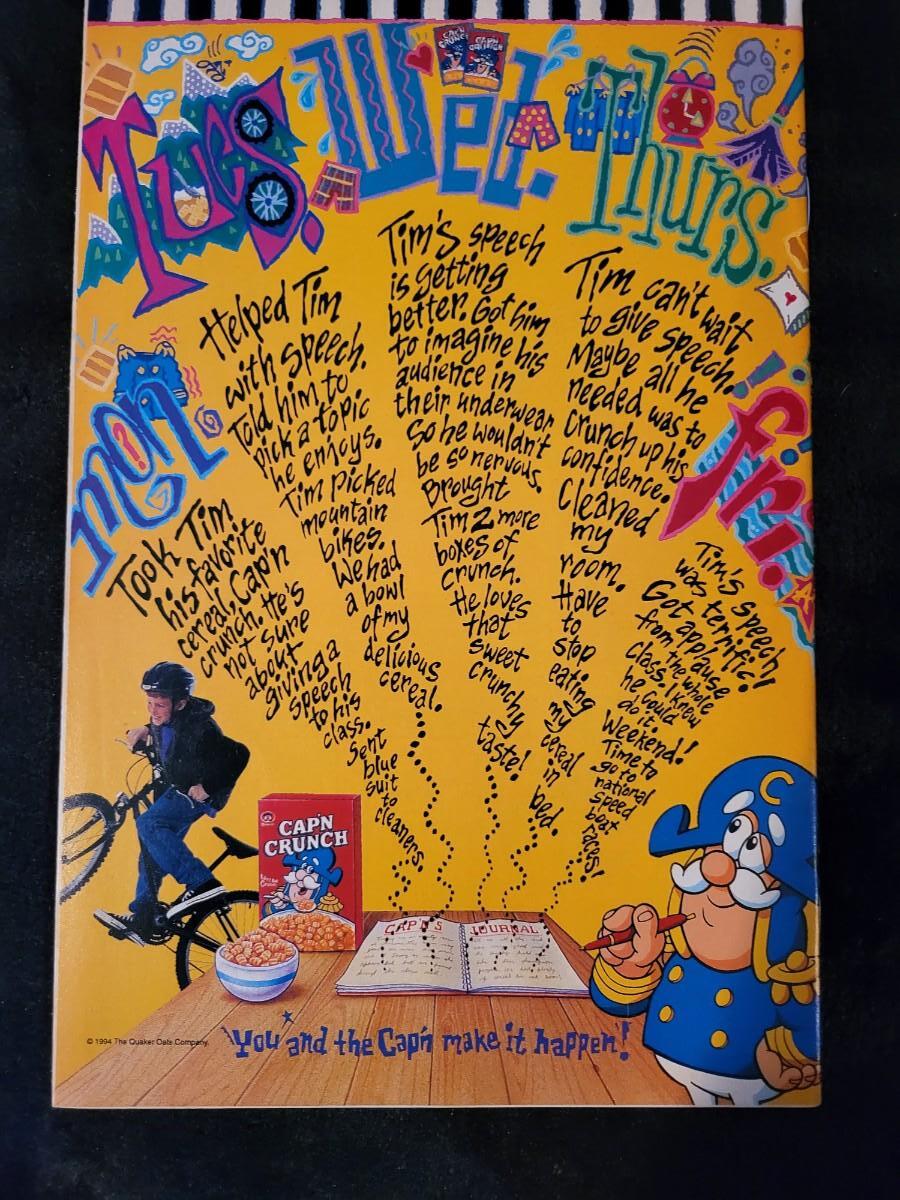 Mon.
Took Tim
his favorite
cereal, Cap'n
Crunch. He's
not sure
about
giving a
speech
to his
class.
Sent
blue
suit
to
cleaners
Tues.
Helped Tim
with speech.
Told him to
pick a topic
he enjoys.
Tim picked
mountain
bikes.
We had
a bowl
of my
delicious
cereal.
Wed.
Tim's speech
is getting
better. Got him
to imagine his
audience in
their underwear
So he wouldn't
be so nervous.
Brought
Tim 2 more
boxes of
Crunch.
He loves
that
sweet
crunchy
taste!
Thurs.
Tim can't wait
to give speech.
Maybe all he
needed was to
crunch up his
confidence.
Cleaned
my
room.
Have
to
stop
eating
my
cereal
in
bed.
Fri.
Tim's speech
was terrific!
Got applause
from the whole
class. I knew
he could
do it.
Weekend!
Time to
go to
national
speed
boat
races!
CAP'N
CRUNCH
CAP'N
CRUNCH
C
CAP'N'S JOURNAL
© 1994 The Quaker Oats Company.
You and the Cap'n make it happen!